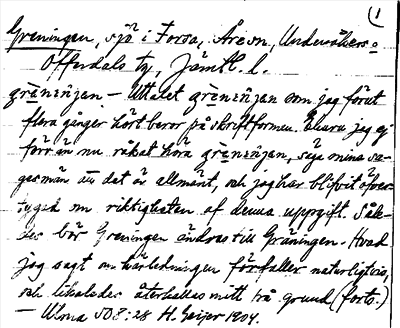 (1
Greningen, sjö i Forsa, Åreson, Undersåkers o
Offerdals tg, Jämtl. l.
grēnenjan – Uttalet grēnenjan som jag förut
flera gånger hört beror på skriftformen. Ehuru jag ej
förr än nu råkat höra grēnenjan, säga mina sa-
gesmän att det är allmänt, och jag har blifvit öfver-
tygad om riktigheten af denna uppgift. Såle-
des bör Greningen ändras till Gräningen. Hvad
jag sagt om härledningen förfaller naturligtvis,
och likaledes återkallas mitt på grund (forts.)
– Ulma 508:28 H. Geijer 1904.